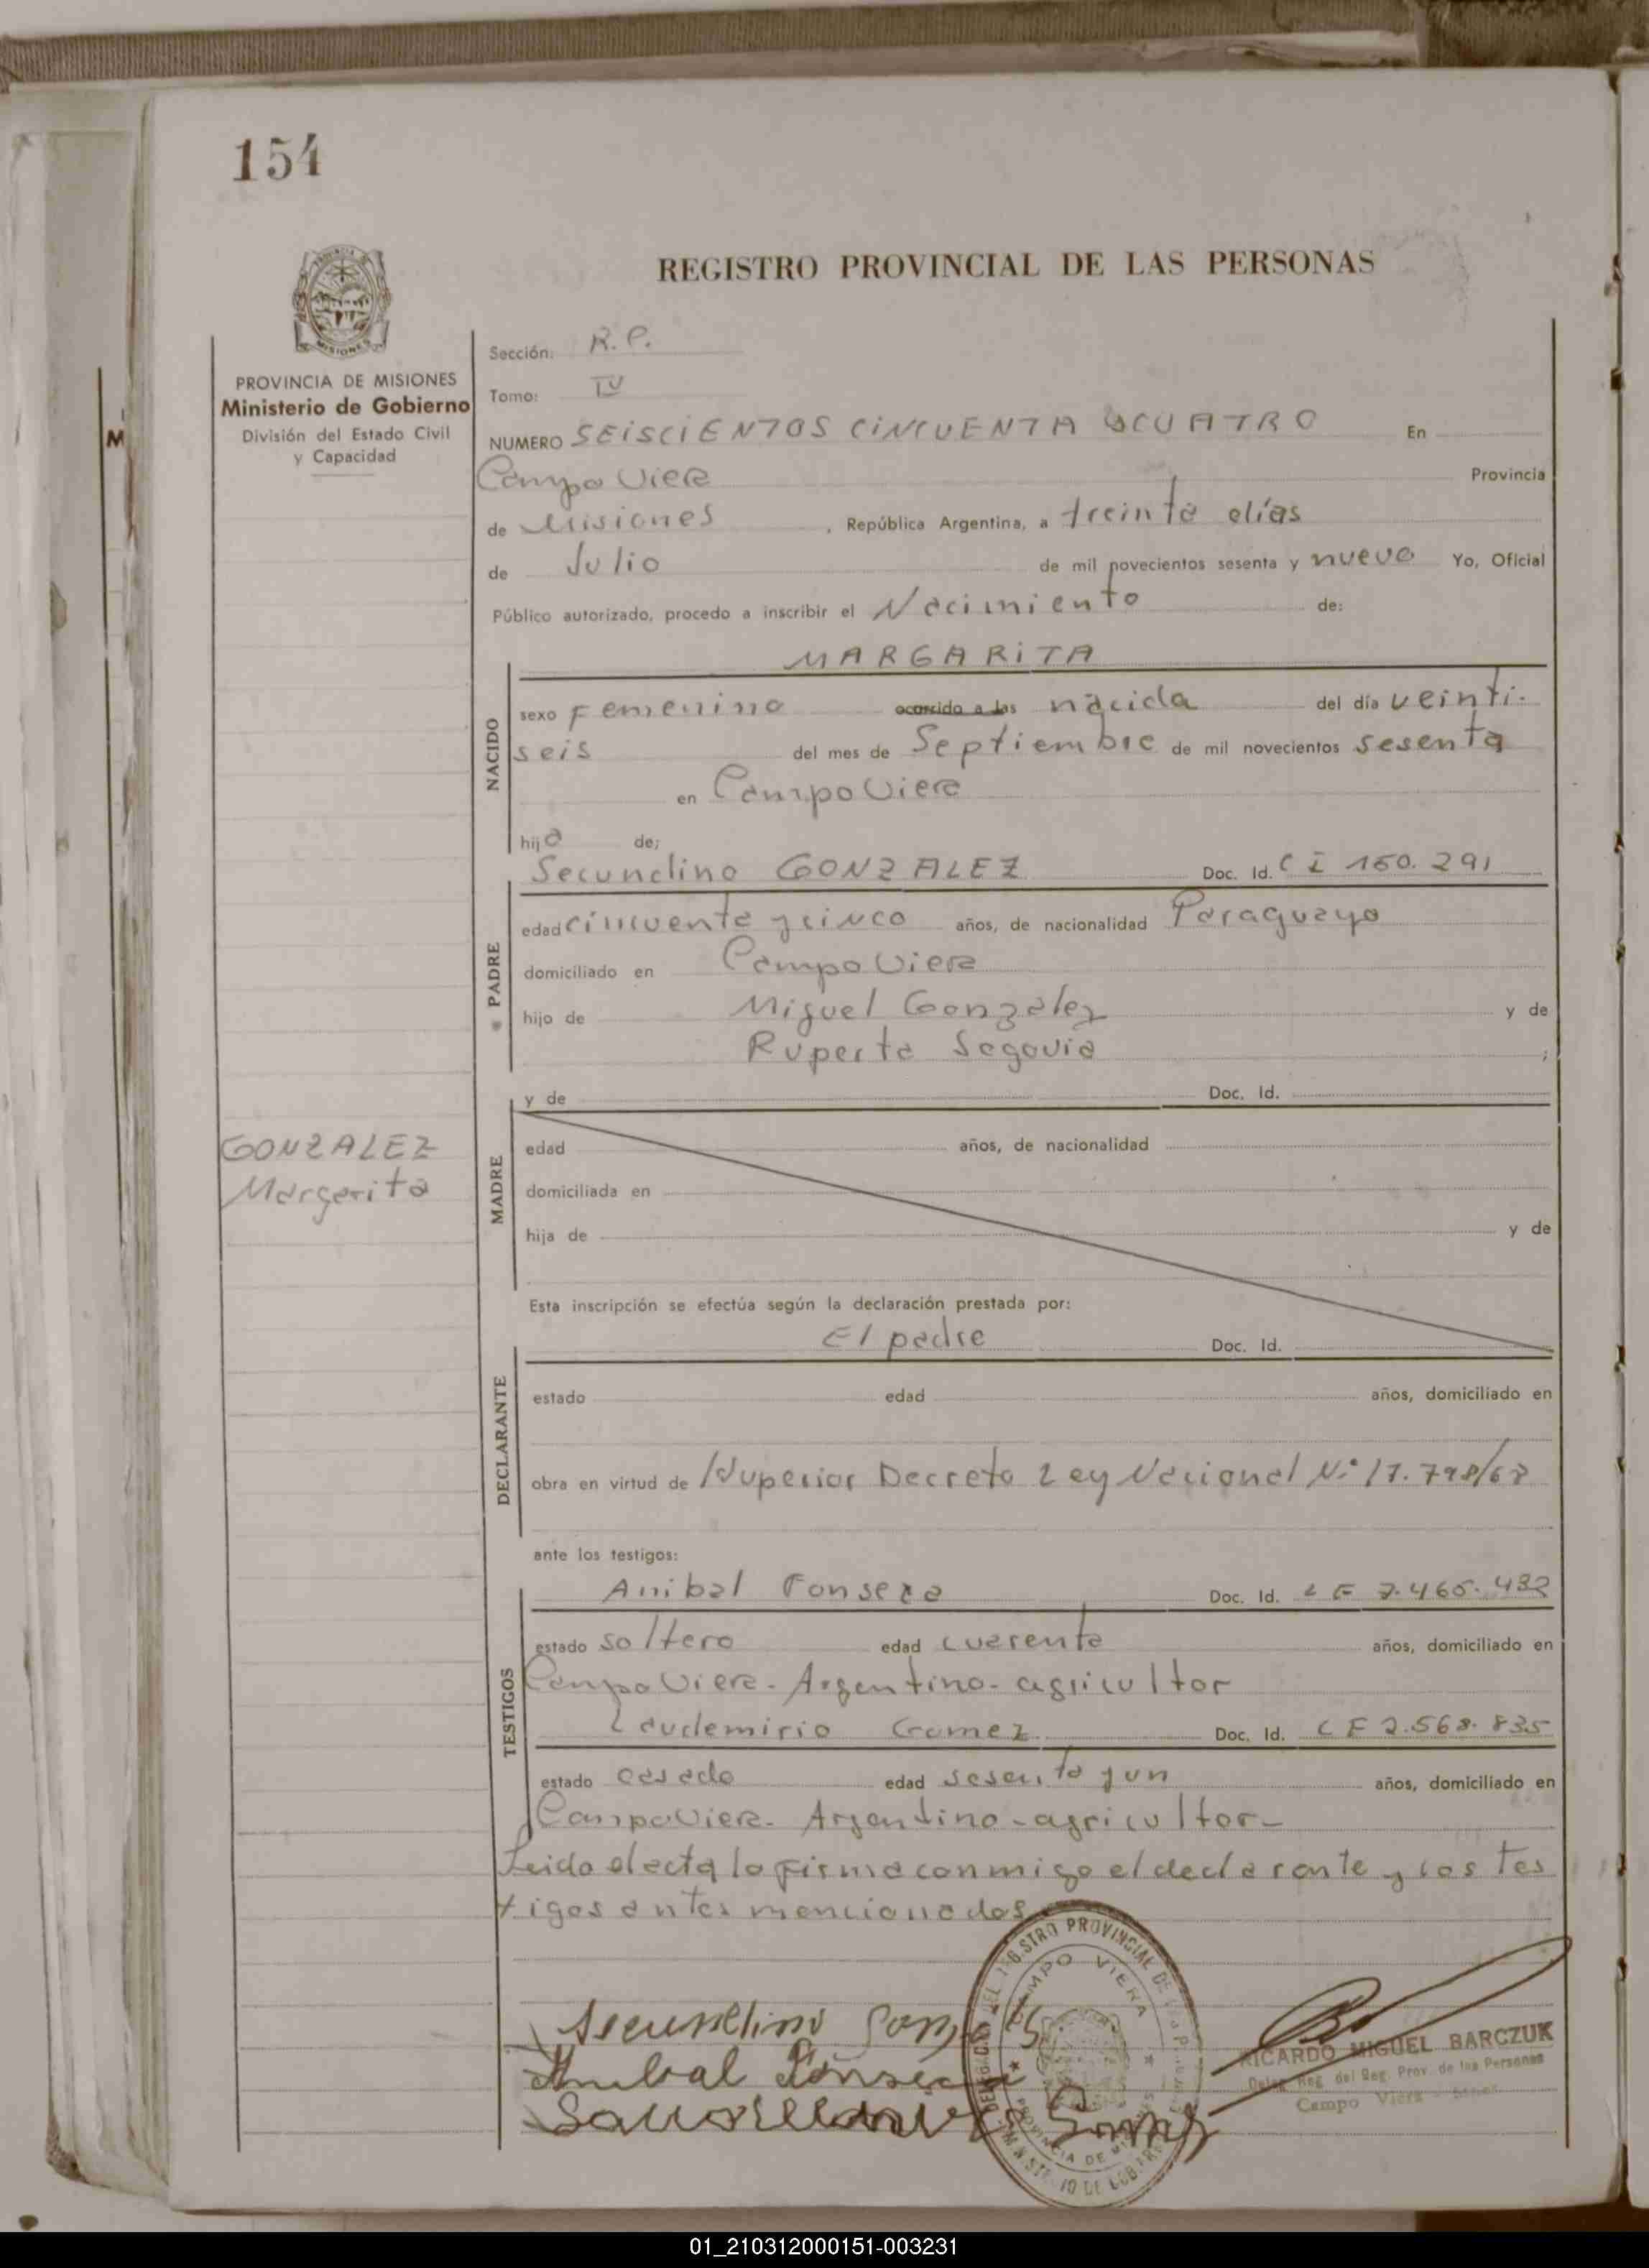 154
REGISTRO PROVINCIAL DE LAS PERSONAS
MISIONES
PROVINCIA DE MISIONES
Ministerio de Gobierno
División del Estado Civil
y Capacidad
M
Sección: R.P.
Tomo: IV
NUMERO SEISCIENTOS CINCUENTA Y CUATRO En
Campo Viera Provincia
de Misiones, República Argentina, a treinta días
de Julio de mil novecientos sesenta y nueve Yo, Oficial
Público autorizado, procedo a inscribir el Nacimiento de:
MARGARITA
NACIDO
sexo Femenino ocurrido a las nacida del día veinti-
seis del mes de Septiembre de mil novecientos sesenta
en Campo Viera
hija de;
Secundino GONZALEZ Doc. Id. C I 160.291
PADRE
edad cincuenta y cinco años, de nacionalidad Paraguayo
domiciliado en Campo Viera
hijo de Miguel Gonzalez y de
Ruperta Segovia ;
y de Doc. Id.
MADRE
edad años, de nacionalidad
domiciliada en
hija de y de
GONZALEZ
Margarita
Esta inscripción se efectúa según la declaración prestada por:
El padre Doc. Id.
DECLARANTE
estado edad años, domiciliado en
obra en virtud de Superior Decreto Ley Nacional N° 17.798/68
ante los testigos:
Anibal Fonseca Doc. Id. L E 7.465.432
TESTIGOS
estado soltero edad cuarenta años, domiciliado en
Campo Viera - Argentino - agricultor
Laudemirio Gomez Doc. Id. L E 2.568.835
estado casado edad sesenta y un años, domiciliado en
Campo Viera - Argentino - agricultor -
Leida el acta la firma conmigo el declarante y los tes
tigos antes mencionados
Secundino
Anibal Fonseca
CAMPO VIERA
PROVINCIA DE MISIONES
RICARDO MIGUEL BARCZUK
Deleg. Reg. del Reg. Prov. de las Personas
Campo Viera
01_210312000151-003231